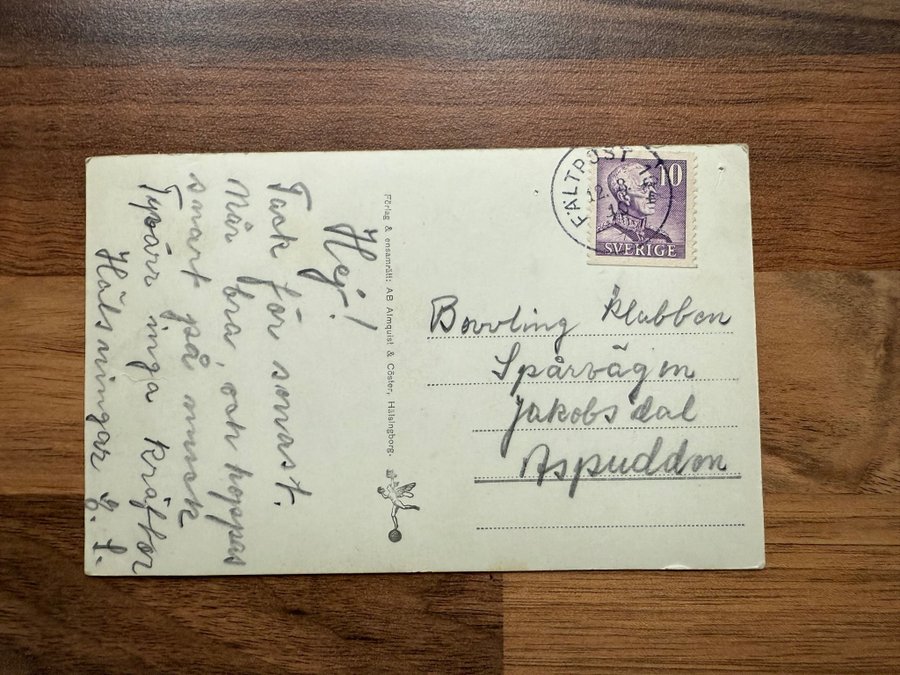 Hej!
Tack för senast.
Mår bra, och hoppas
snart på munck
Tyvärr inga kräftor
Hälsningar
Förlag & ensamrätt: AB Almquist & Cöster, Hälsingborg.
FÄLTPOST
12. 8
10
SVERIGE
Bowling Klubben
Spårvägen
Jakobsdal
Aspudden